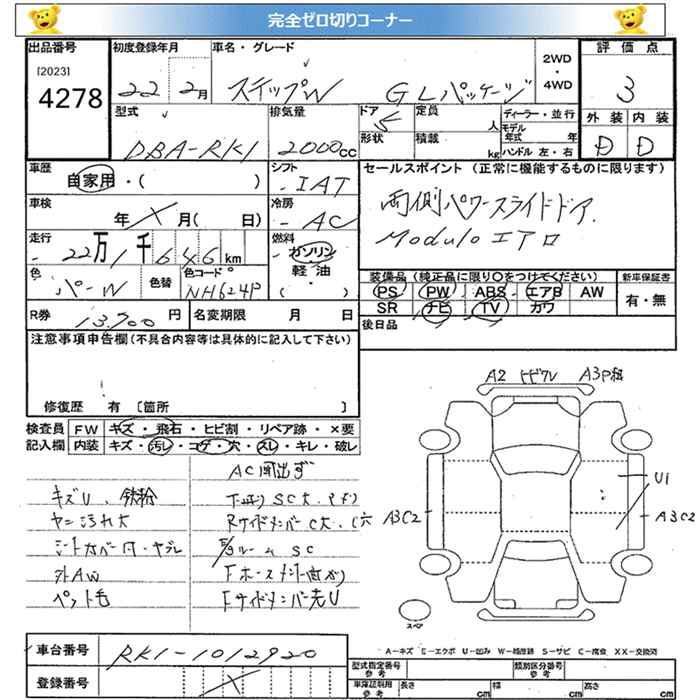 完全ゼロ切りコーナー
出品番号 初度登録年月 車名・グレード 2WD・4WD 評価点
[2023]
4278 22 2月 ステップW GLパッケージ 3
型式 排気量 ドア 形状 定員 人 積載 kg ディーラー・並行 モデル年式 年 ハンドル 左・右 外装 内装
DBA-RK1 2000cc D D
車歴 自家用・( ) シフト IAT セールスポイント (正常に機能するものに限ります)
車検 年 月( 日) 冷房 AC 両側パワースライドドア.
走行 22万1千646km 燃料 ガソリン 軽油 ( ・ ) Moduloエアロ
色 パーW 色替 色コード NH624P 装備品(純正品に限り○をつけてください) 新車保証書
PS PW ABS エアB AW 有・無
SR ナビ TV カワ
R券 13,700円 名変期限 月 日 後日品
注意事項申告欄(不具合内容等は具体的に記入して下さい)
修復歴 有 [箇所 ]
A2 ヒビワレ A3P組
検査員 FW キズ・飛石・ヒビ割・リペア跡・×要
記入欄 内装 キズ・汚レ・コゲ・穴・スレ・キレ・破レ
キズU、鉄粉
ヤニ汚れ大
シートカバー付・ヤブレ
外AW
ペット毛
下廻りSC大.
RサイドメンバーC大.C穴
SC
Fサイドメンバー先U
A3C2 U1 A3C2
スペア
A-キズ E-エクボ U-凹み W-補修跡 S-サビ C-腐食 XX-交換済
車台番号 RK1-1012920
登録番号
型式指定番号 参考 類別区分番号 参考
車庫証明用 参考 長さ cm 幅 cm 高さ cm